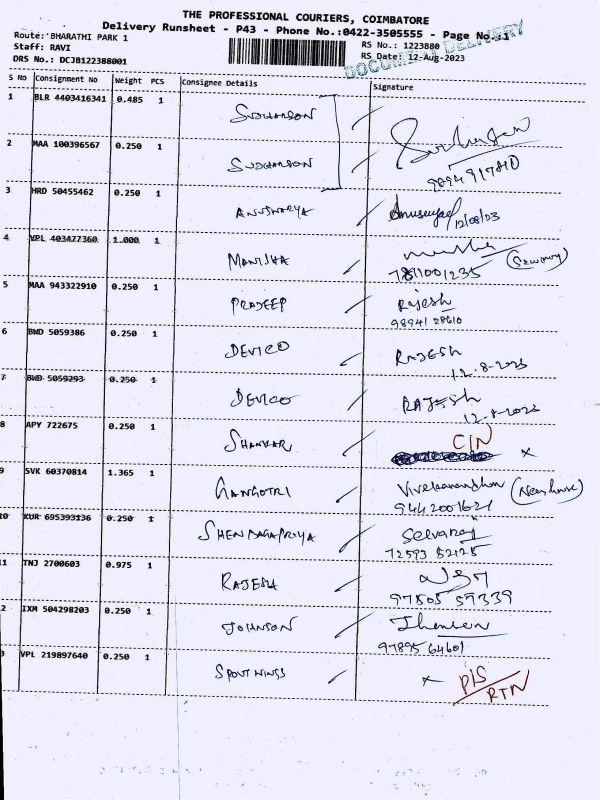 THE PROFESSIONAL COURIERS, COIMBATORE
Delivery Runsheet - P43 - Phone No.:0422-3505555 - Page No.:1
Route: BHARATHI PARK 1
Staff: RAVI
RS No.: 1223880
DRS No.: DCJB122388001
RS Date: 12-Aug-2023
DOCUMENT DELIVERY
S No Consignment No Weight PCS Consignee Details Signature
1 BLR 4403416341 0.485 1 SUDHARSON
2 MAA 100396567 0.250 1 SUDHARSON
9894917810
3 HRD 50455462 0.250 1 12/08/03
4 VPL 403477360 1.000 1 MANISHA
7811001235
5 MAA 943322910 0.250 1 PRADEEP Rajesh
98941 28610
6 BWD 5059386 0.250 1 DEVICO RAJESH
12-8-2023
7 BWD 5059293 0.250 1 DEVICO RAJESH
12-8-2023
8 APY 722675 0.250 1 SHANKAR C/N
x
9 SVK 60370814 1.365 1 GANGOTRI Vivekanandhan (Near house)
9442001621
10 KUR 695393136 0.250 1 SHENBAGAPRIYA Selvaraj
72593 52125
11 TNJ 2700603 0.975 1 RAJESH
97505 59339
2 IXM 504298203 0.250 1 JOHNSON Johnson
97895 64601
3 VPL 219897640 0.250 1 SPOUT WINGS x P/S
RTN